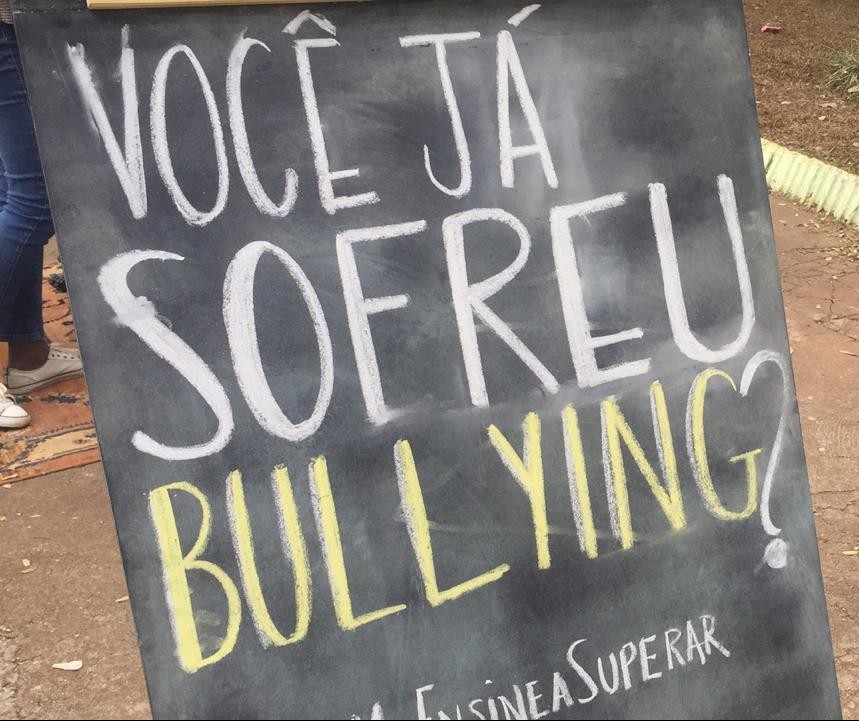 VOCÊ JÁ
SOFREU
BULLYING?
EnsineaSuperar